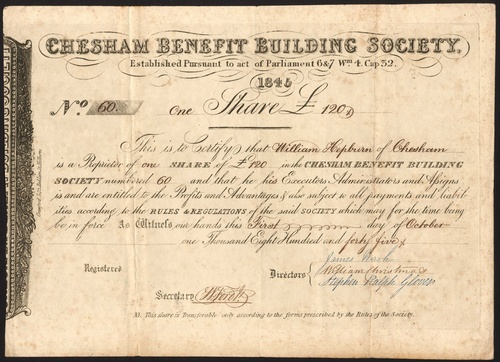 CHESHAM BENEFIT BUILDING SOCIETY,
Established Pursuant to act of Parliament 6&7 Wm 4. Cap 32.
1845
No. 60. One Share £ 120
This is to Certify that William Hepburn of Chesham
is a Proprietor of one SHARE of £120 in the CHESHAM BENEFIT BUILDING
SOCIETY numbered 60 and that he his Executors Administrators and Assigns
is and are entitled to the Profits and Advantages & also subject to all payments and liabil-
ities according to the RULES & REGULATIONS of the said SOCIETY which may for the time being
be in force As Witness our hands this First day of October
one Thousand Eight Hundred and forty five
James
William
Registered Directors Stephen Ralph Glover
Secretary
N.B. This share is Transferable only according to the forms prescribed by the Rules of the Society.